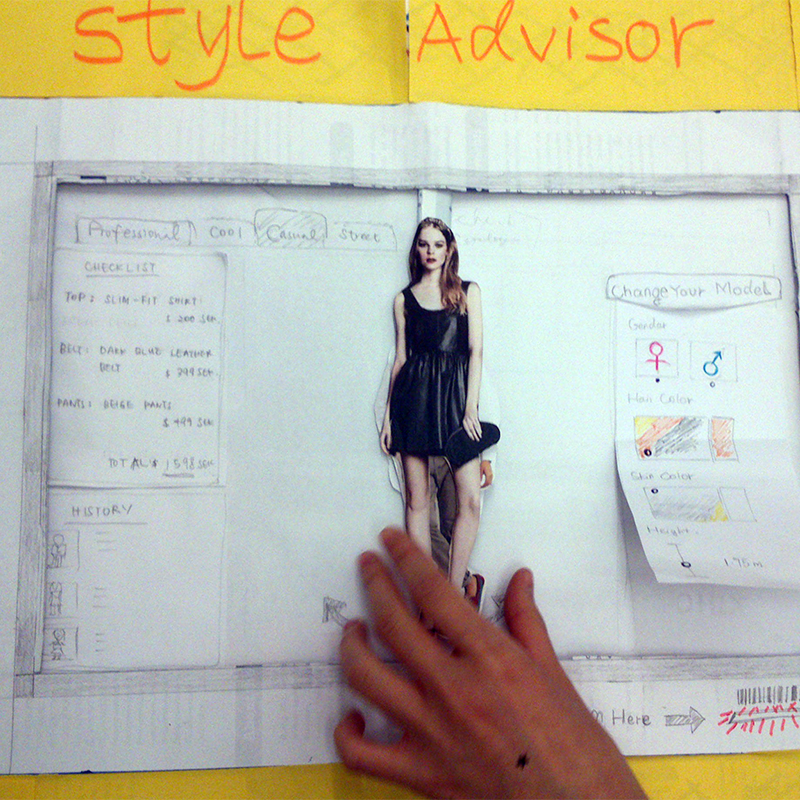 Style Advisor
Professional Cool Casual Street
CHECKLIST
TOP: SLIM-FIT SHIRT.
$ 200 SEK.
BELT: DARK BLUE LEATHER
BELT $ 399 SEK
PANTS: BEIGE PANTS
$ 499 SEK
TOTAL $ 1598 SEK
HISTORY
Change Your Model
Gender
Hair Color
Skin Color
Height.
1.75m
Here